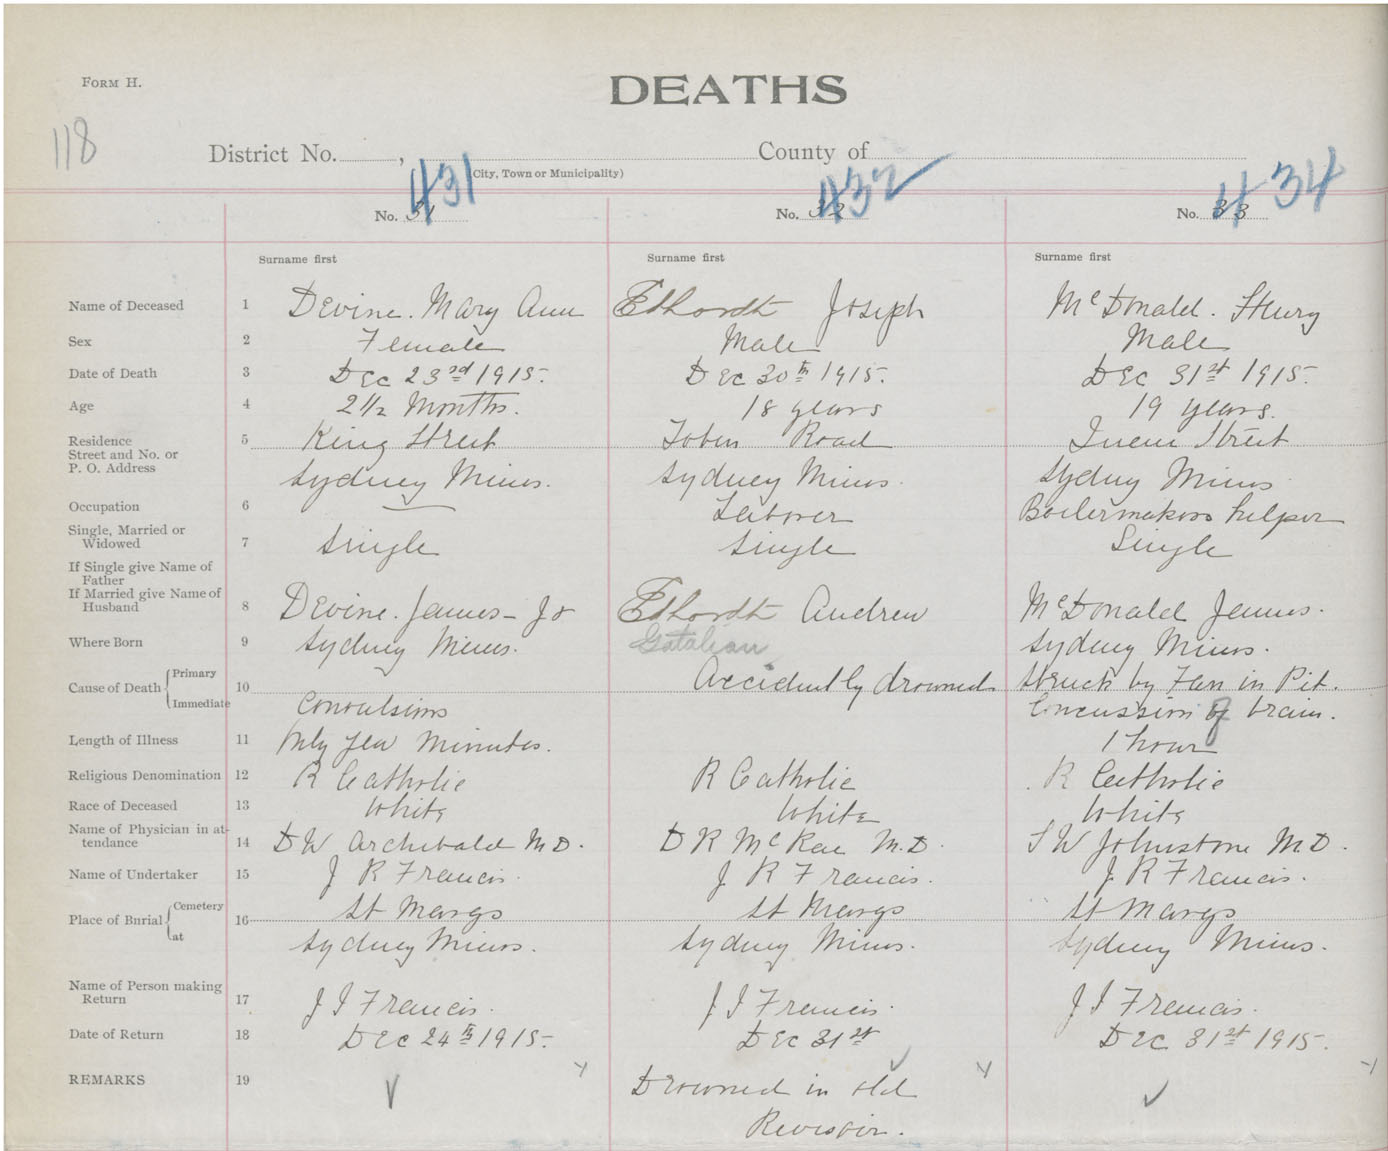 FORM H.
DEATHS
118
District No. , County of
(City, Town or Municipality)
431 432 434
No. 31 No. 32 No. 33
Surname first Surname first Surname first
Name of Deceased 1 Devine. Mary Ann Joseph McDonald. Henry
Sex 2 Female Male Male
Date of Death 3 Dec 23rd 1915. Dec 30th 1915. Dec 31st 1915.
Age 4 2 1/2 Months. 18 years 19 years.
Residence
Street and No. or
P. O. Address
5 King Street Tobin Road Queen Street
Sydney Mines. Sydney Mines. Sydney Mines
Occupation 6 — Laborer Boilermakers helper
Single, Married or
Widowed
7 Single Single Single
If Single give Name of
Father
If Married give Name of
Husband
8 Devine. James - Jr Andrew McDonald James.
Where Born 9 Sydney Mines. Sydney Mines.
Cause of Death { Primary 10 Accidently drowned Struck by Fan in Pit.
Immediate Convulsions Concussion of brain.
Length of Illness 11 Only few minutes. 1 hour
Religious Denomination 12 R Catholic R Catholic R Catholic
Race of Deceased 13 White White White
Name of Physician in at-
tendance
14 D W Archibald M D. D R McRae M. D. J W Johnstone M D.
Name of Undertaker 15 J R Francis. J R Francis. J R Francis.
Place of Burial { Cemetery 16 St Marys St Marys St Marys
at Sydney Mines. Sydney Mines. Sydney Mines.
Name of Person making
Return
17 J J Francis. J J Francis. J J Francis.
Date of Return 18 Dec 24th 1915. Dec 31st Dec 31st 1915.
REMARKS 19 Drowned in old
Revisoir.